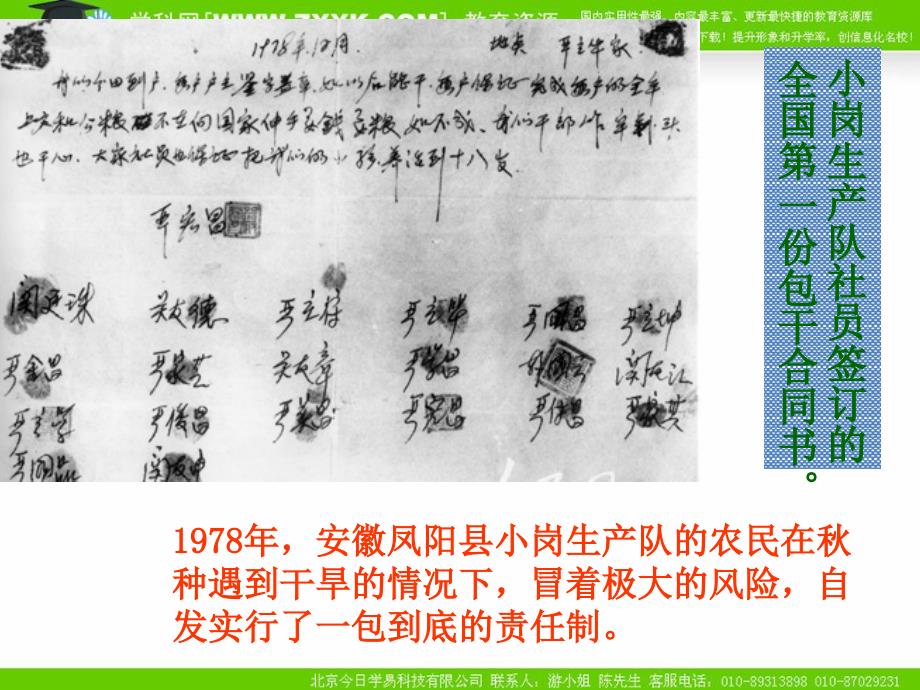 学科网[WWW.ZXXK.COM]-教育资源
国内实用性最强、内容最丰富、更新最快捷的教育资源库
下载！提升形象和升学率，创信息化名校！
1978年12月 地点 严立华家
我们分田到户，每户户主签字盖章，如以后能干，每户保证完成每户的全年
上交和公粮 不在向国家伸手要钱要粮，如不成，我们干部作牢刹头
也干心，大家社员也保证把我们的小孩养活到十八岁
严宏昌
关廷珠 关友德 严立符 严立华 严国昌 严立坤
严金昌 严家芝 关友章 严学昌 韩国云 关友江
严立学 严俊昌 严美昌 严宏昌 严付昌 严家其
严国品 关友申
小岗生产队社员签订的
全国第一份包干合同书。
1978年，安徽凤阳县小岗生产队的农民在秋
种遇到干旱的情况下，冒着极大的风险，自
发实行了一包到底的责任制。
北京今日学易科技有限公司 联系人：游小姐 陈先生 客服电话：010-89313898 010-87029231